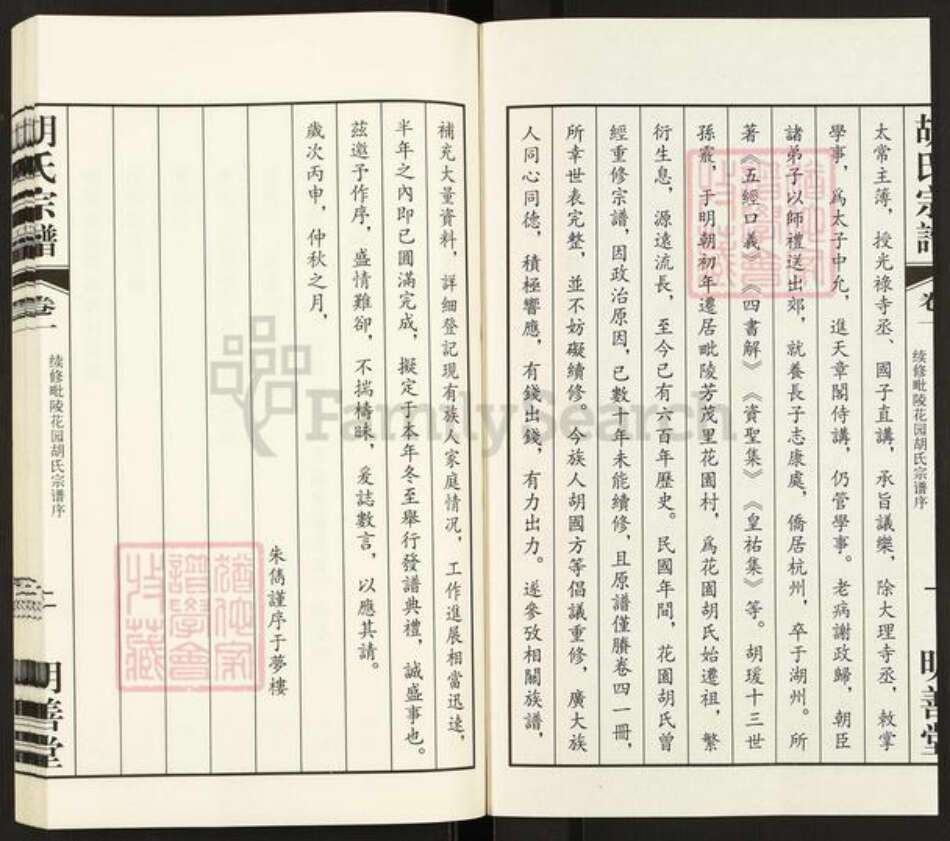 胡氏宗譜
卷一
续修毗陵花园胡氏宗谱序
明善堂
太常主簿，授光祿寺丞、國子直講，承旨議樂，除大理寺丞，敕掌
學事，爲太子中允，進天章閣侍講，仍管學事。老病謝政歸，朝臣
諸弟子以師禮送出郊，就養長子志康處，僑居杭州，卒于湖州。所
著《五經口義》《四書解》《資聖集》《皇祐集》等。胡瑗十三世
孫霰，于明朝初年遷居毗陵芳茂里花園村，爲花園胡氏始遷祖，繁
衍生息，源遠流長，至今已有六百年歷史。民國年間，花園胡氏曾
經重修宗譜，因政治原因，已數十年未能續修，且原譜僅賸卷四一冊，
所幸世表完整，並不妨礙續修。今族人胡國方等倡議重修，廣大族
人同心同德，積極響應，有錢出錢，有力出力。遂參攷相關族譜，
補充大量資料，詳細登記現有族人家庭情况，工作進展相當迅速，
半年之內即已圓滿完成，擬定于本年冬至舉行發譜典禮，誠盛事也。
茲邀予作序，盛情難卻，不揣檮昧，爰誌數言，以應其請。
歲次丙申，仲秋之月，
朱雋謹序于夢樓
胡氏宗譜
卷一
续修毗陵花园胡氏宗谱序
二
明善堂
FamilySearch